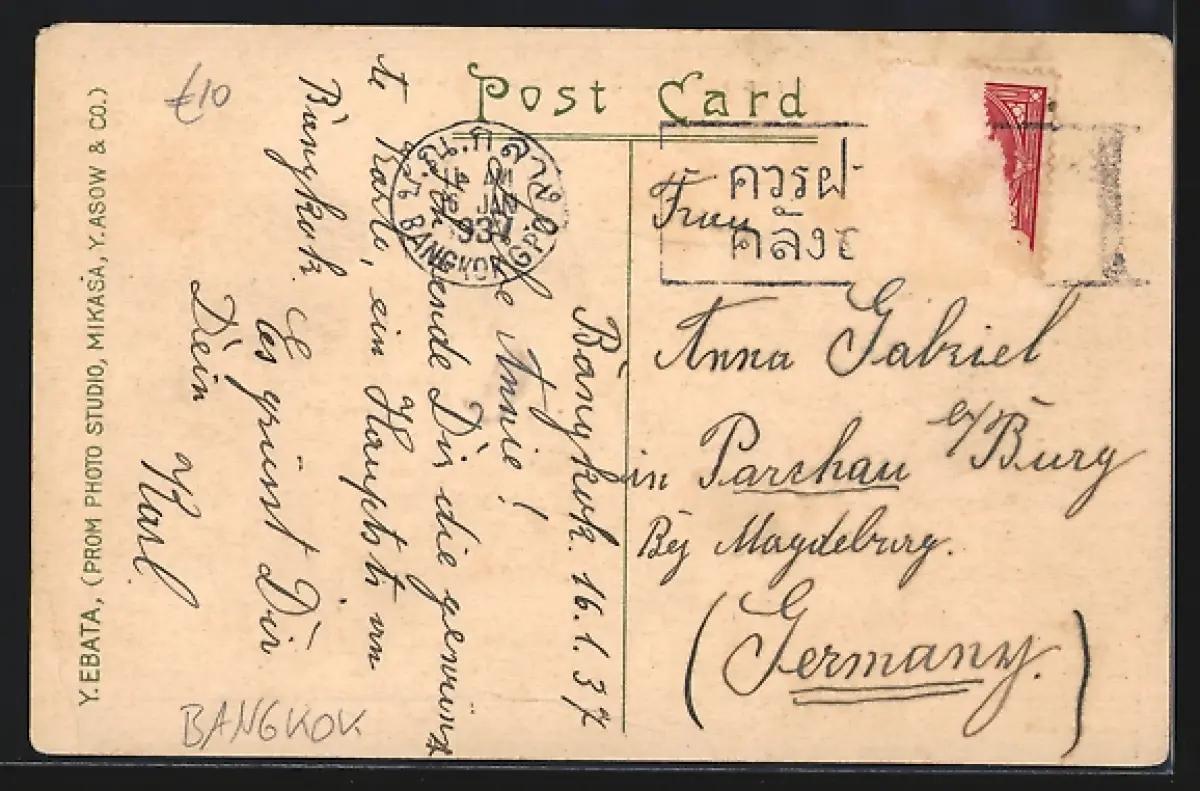 Post Card
£10
Y. EBATA, (PROM PHOTO STUDIO, MIKASA, Y. ASOW & CO.)
ควรฝ
คลัง
JAN
BANGKOK G.P.O.
Frau
Anna Gabriel
in Parchau b/Burg
Bej Magdeburg.
(Germany.)
Bangkok. 16.1.37
Annie!
Ich sende Dir die gewünsk
te Karte, ein Hauptst. von
Bangkok. Es grüsst Dir
Dein
Karl.
BANGKOK